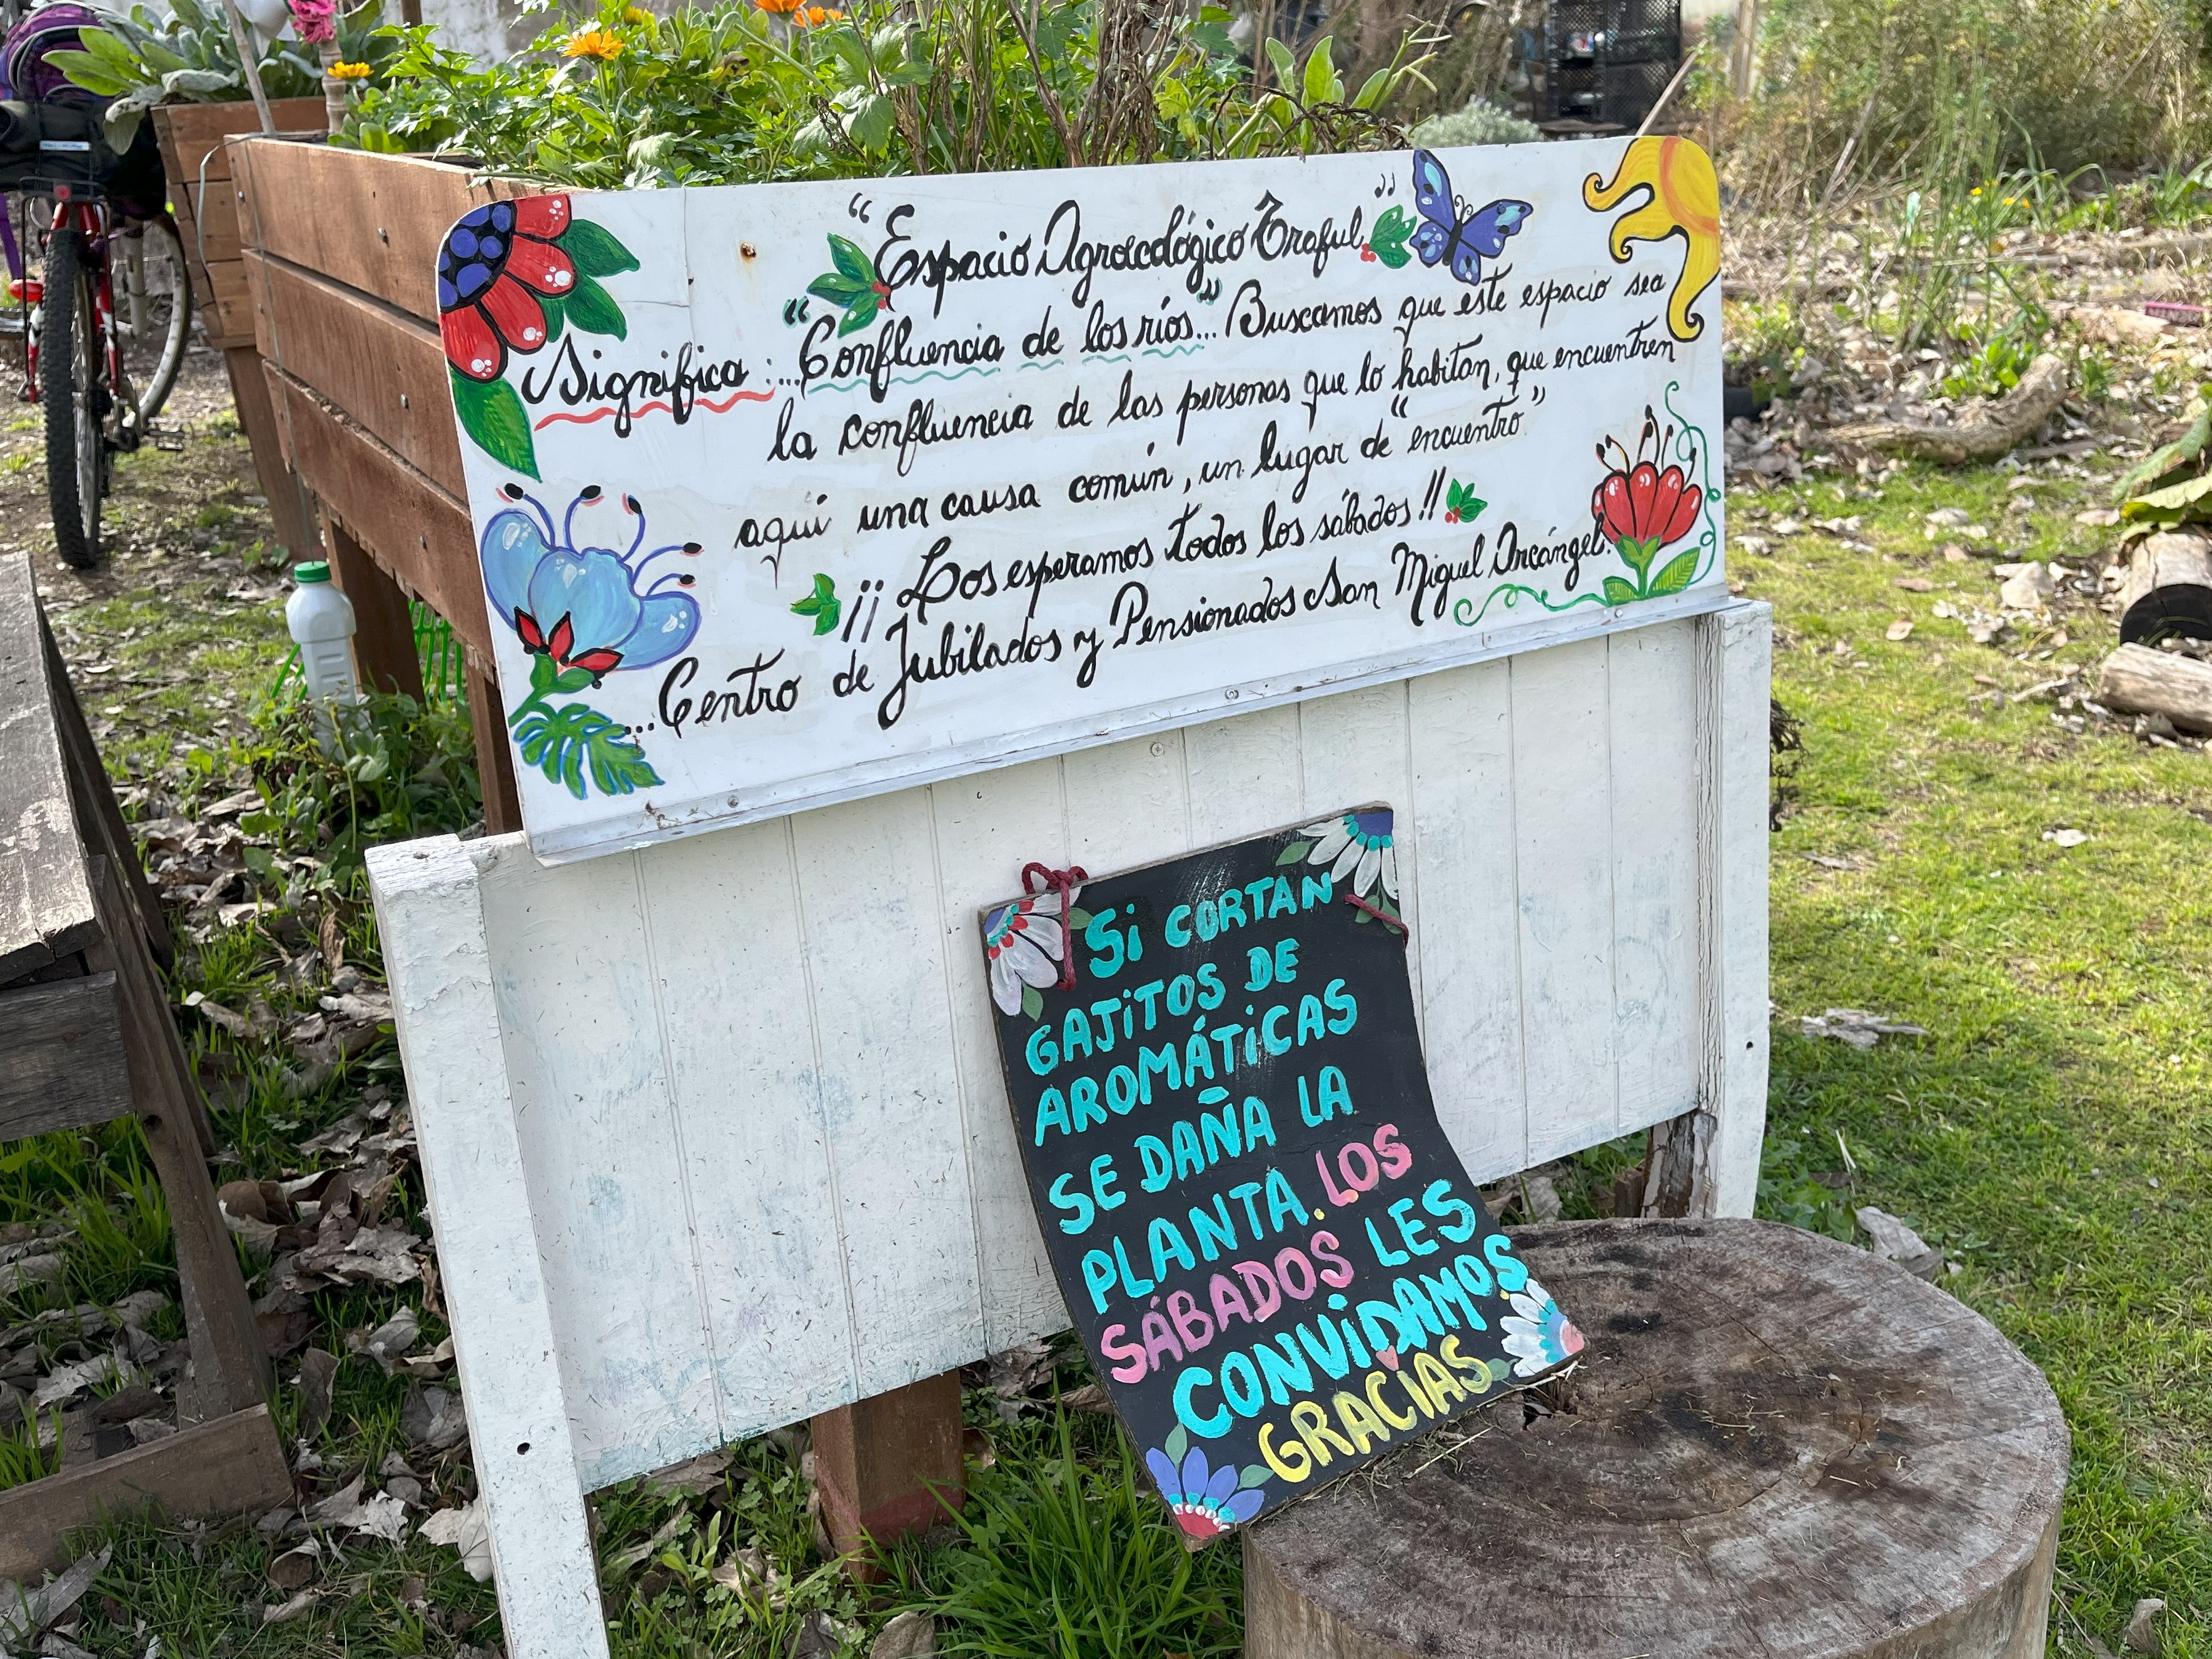 "Espacio Agroecológico Traful"
Significa:..."Confluencia de los ríos"... Buscamos que este espacio sea
la confluencia de las personas que lo habitan, que encuentren
aquí una causa común, un lugar de "encuentro"
¡¡ Los esperamos todos los sábados!!
...Centro de Jubilados y Pensionados San Miguel Arcángel.
Si CORTAN
GAJiTOS DE
AROMÁTiCAS
SE DAÑA LA
PLANTA. LOS
SÁBADOS LES
CONViDAMOS
GRACiAS